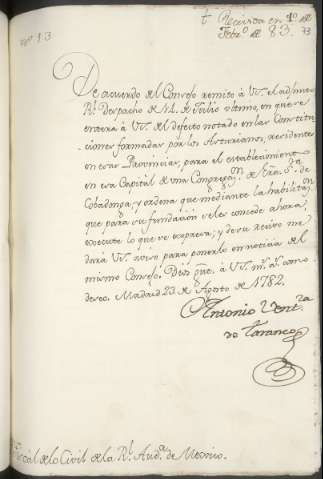 Recivida en 1º. de
Febrº. de 83.
De acuerdo del Consejo remito à Vs. el adjunto
Rl. Despacho de 31. de Julio ultimo, en que se
enterá à Vs. del defecto notado en las Constitu
ciones formadas por los Asturianos, residentes
en esas Provincias, para el establecimiento
en esa Capital de una Congregaⁿ. de Nra. Sª. de
Cobadonga, y ordena que mediante la habilitaⁿ.
que para su fundación se les concede ahora,
execute lo que se expresa; y de su recivo me
dará Vs. aviso para ponerlo en noticia del
mismo Consejo. Dios gue. à Vs. ms. as. como
deseo. Madrid 23. de Agosto de 1782.
Antonio Vent.ra
de Taranco
Fiscal de lo Civil de la Rl. Audª. de Mexico.